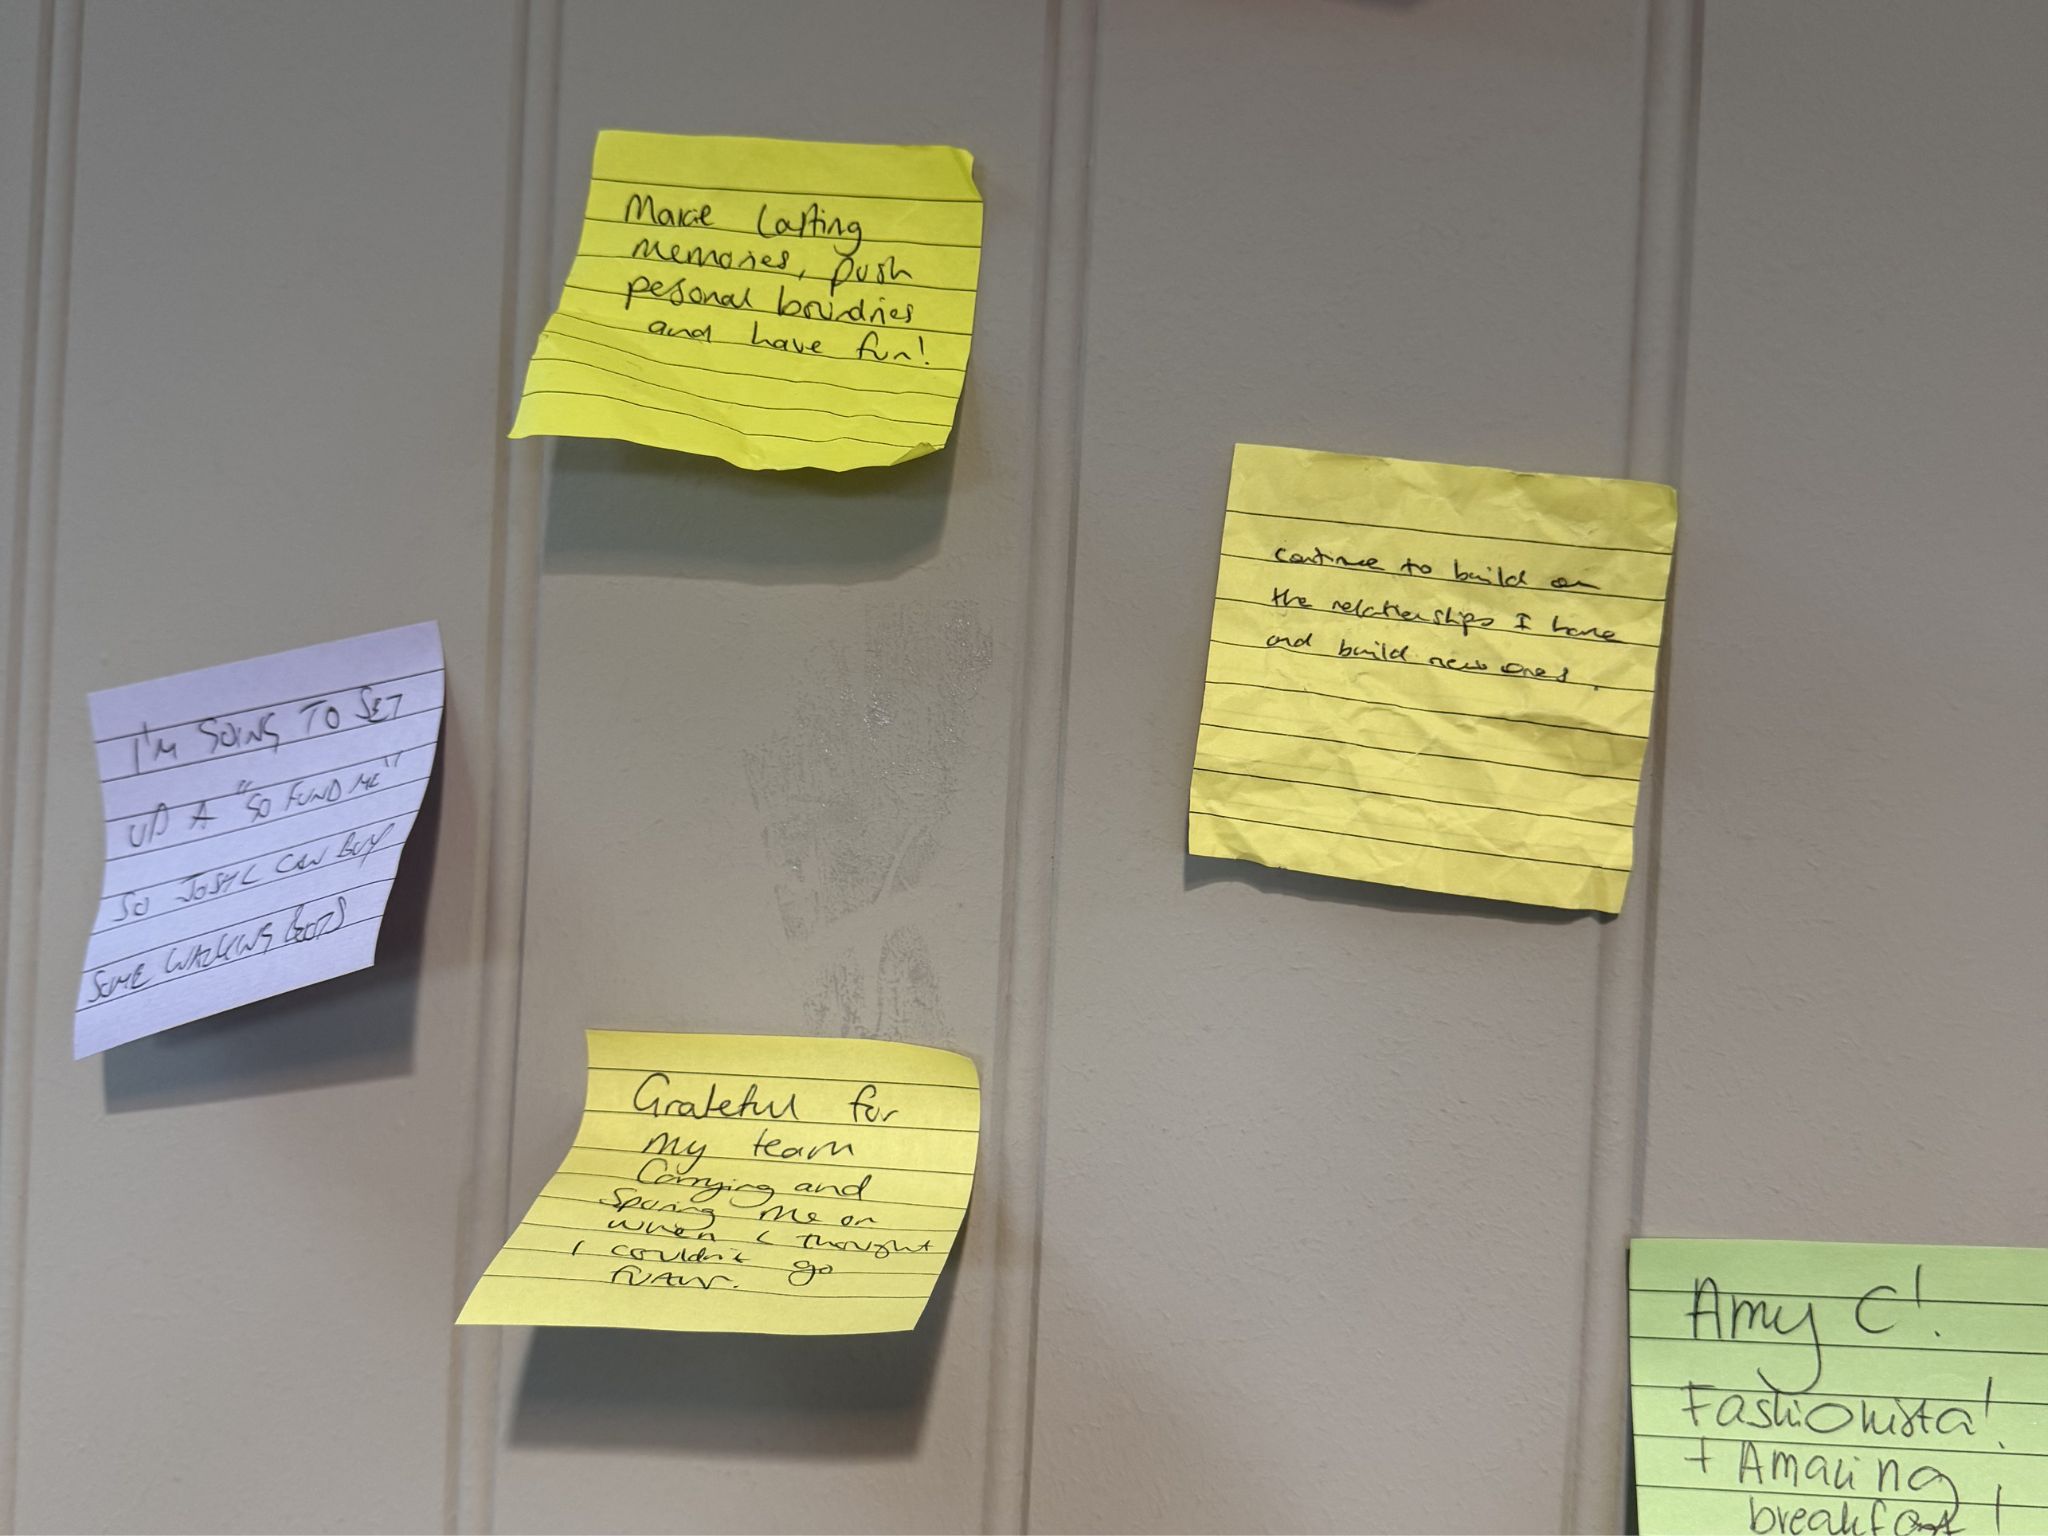 Make lasting
memories, push
pesonal boundries
and have fun!
continue to build on
the relationships I have
and build new ones.
I'M GOING TO SET
UP A "GO FUND ME"
SO JOSH C CAN BUY
SOME WALKING BOOTS
Grateful for
my team
Carrying and
Spuring me on
when I thought
I couldn't go
Amy C!
Fashionista!
+ Amazing
breakfast!